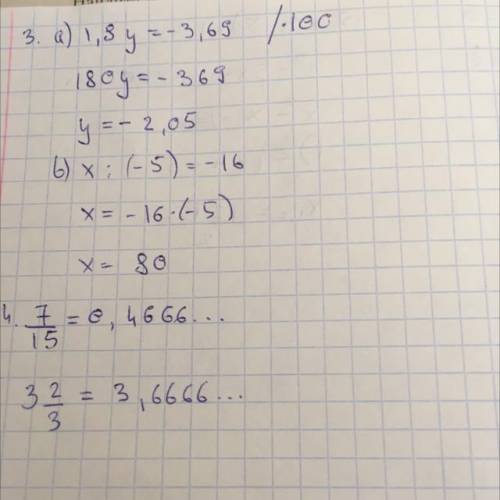 3. а) 1,8 y = - 3,69 /·100
180y = - 369
y = - 2,05
b) x : (-5) = -16
x = - 16·(-5)
x = 80
4. 7/15 = 0,4666...
3 2/3 = 3,6666...